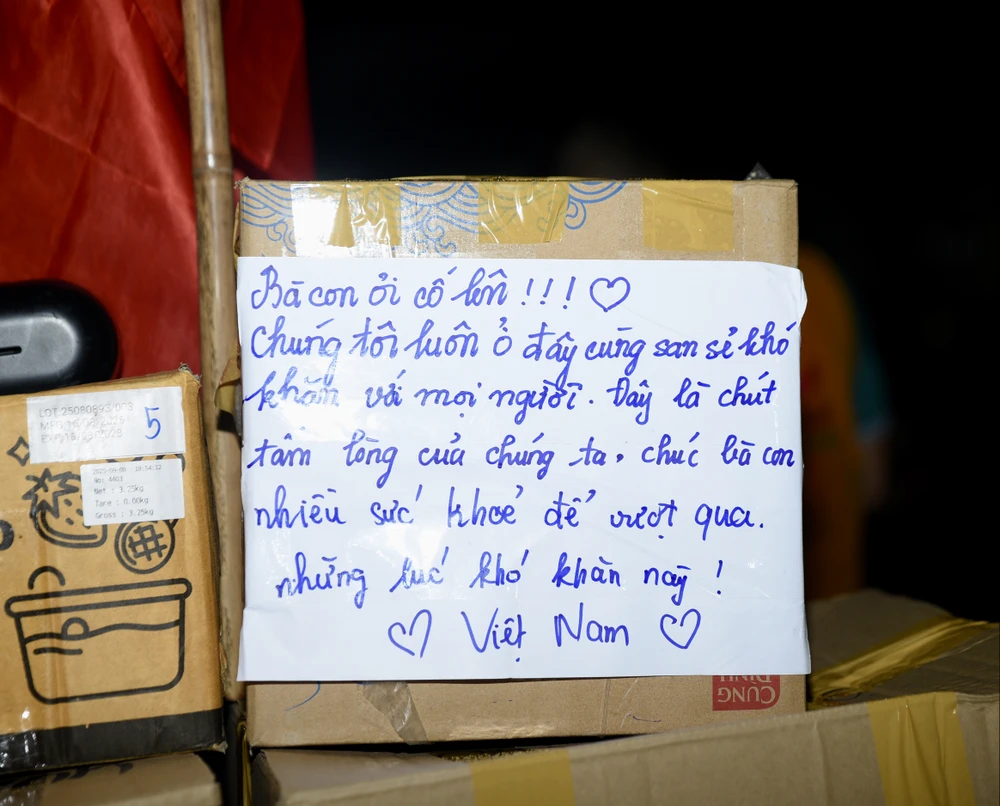 Bà con ơi cố lên !!! ♡
Chúng tôi luôn ở đây cùng san sẻ khó
khăn với mọi người. Đây là chút
tấm lòng của chúng ta. chúc bà con
nhiều sức khoẻ để vượt qua.
những lúc khó khăn này !
♡ Việt Nam ♡
LOT:25080893/003
5
2025-09-06 10:54:12
No: 4403
Net : 3.25kg
Tare : 0.00kg
Gross : 3.25kg
CUNG
ĐÌNH